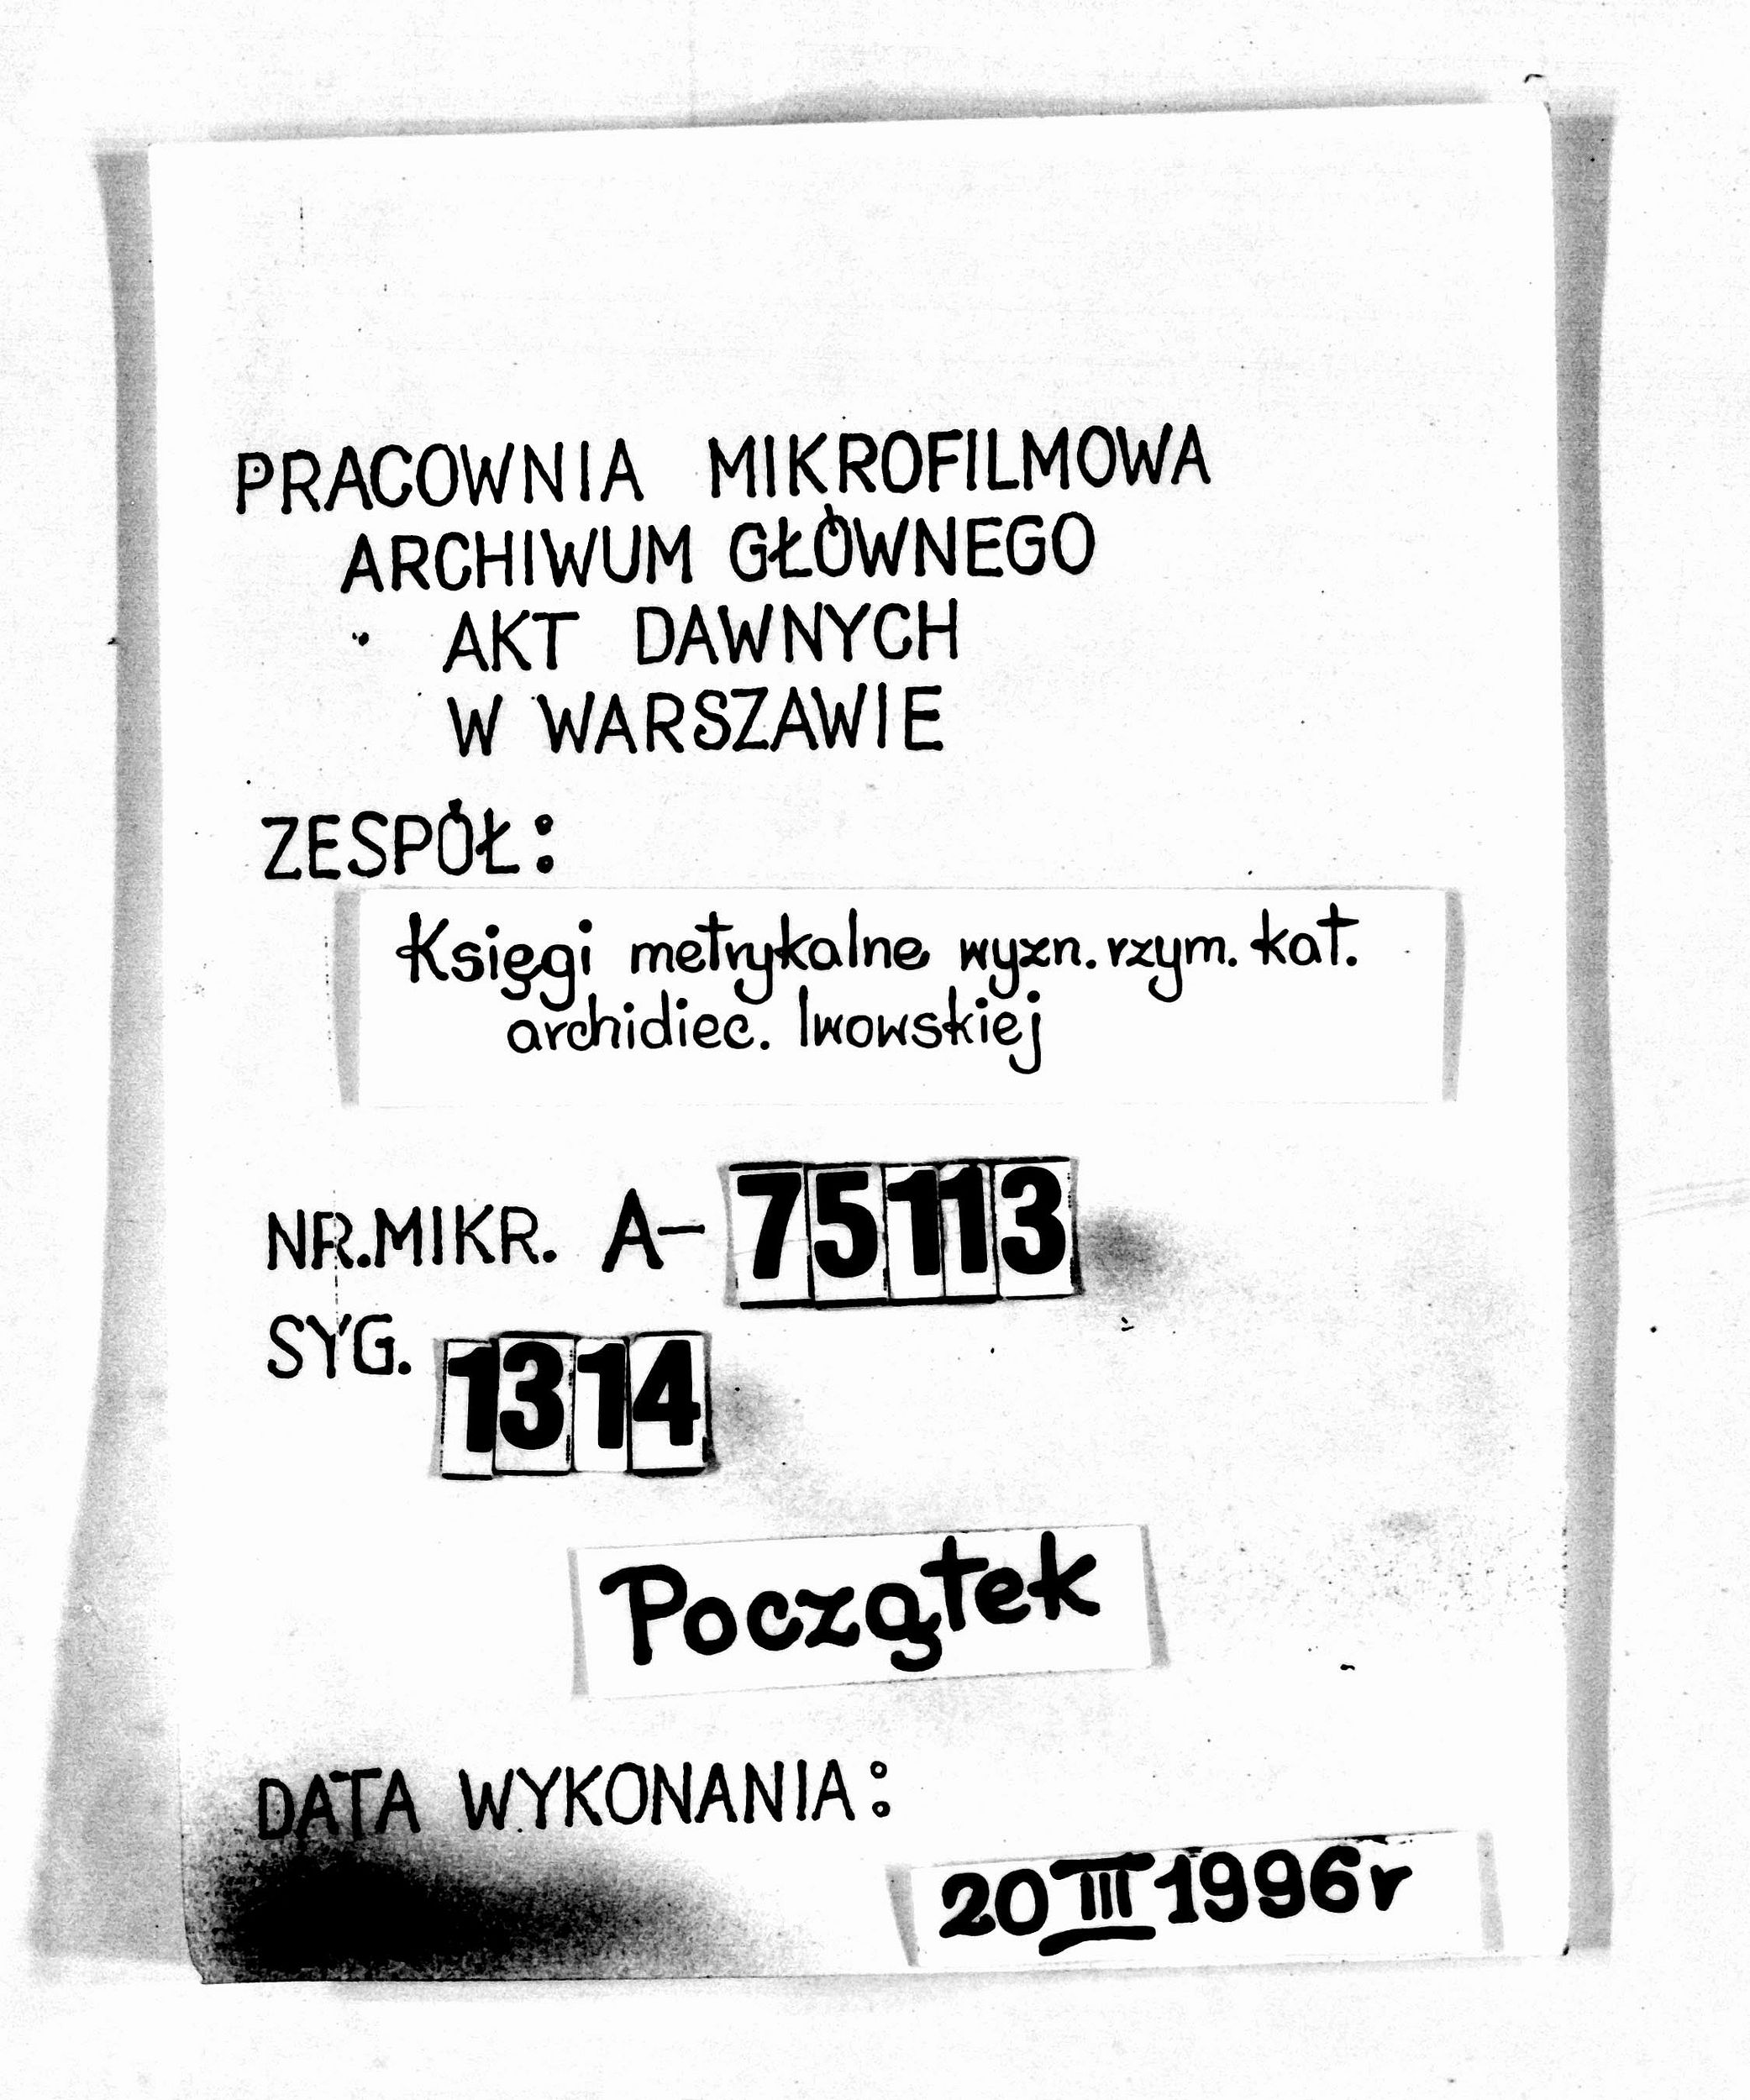 PRACOWNIA MIKROFILMOWA
ARCHIWUM GŁÓWNEGO
AKT DAWNYCH
W WARSZAWIE
ZESPÓŁ:
Księgi metrykalne wyzn. rzym. kat.
archidiec. lwowskiej
NR. MIKR. A- 75113
SYG. 1314
Początek
DATA WYKONANIA:
20 III 1996r